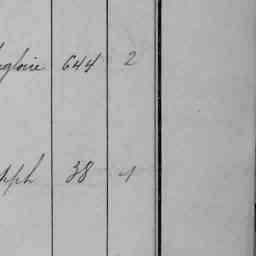 gloire 644 2
eph 38 1